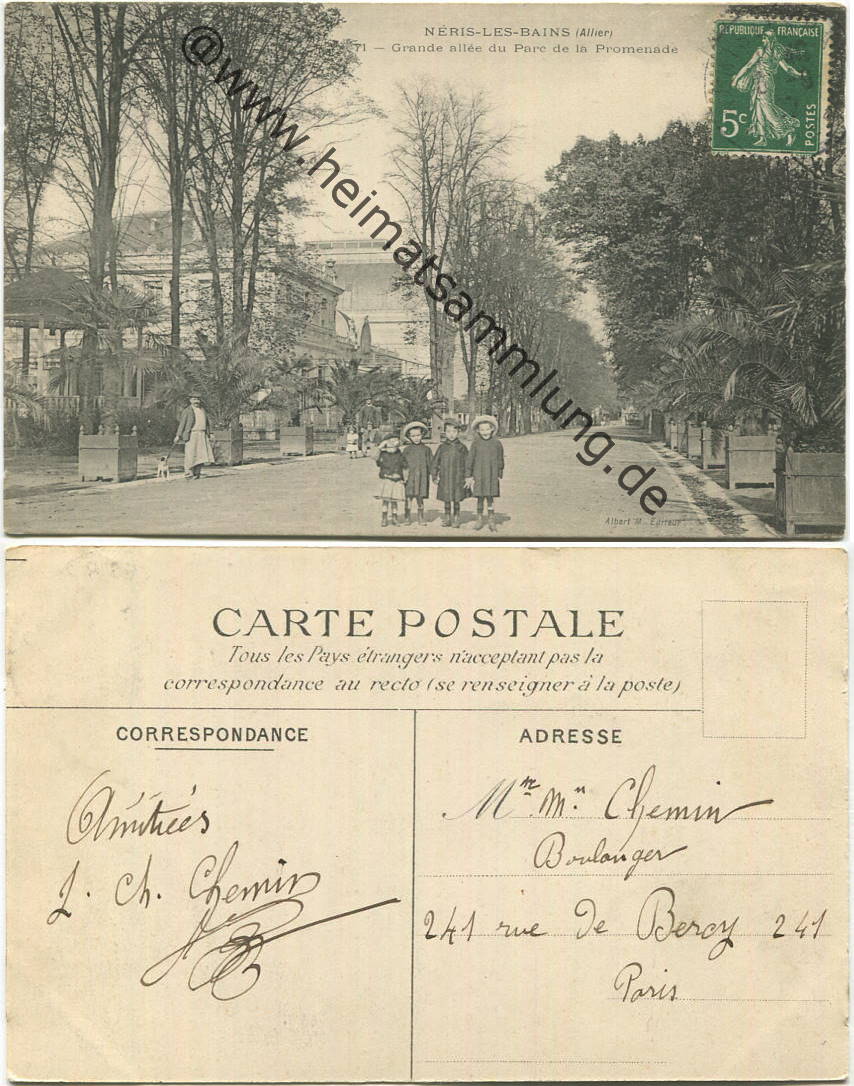 NÉRIS-LES-BAINS (Allier)
71 — Grande allée du Parc de la Promenade
REPUBLIQUE FRANÇAISE
5c
POSTES
@www.heimatsammlung.de
Albert M. Editeur
CARTE POSTALE
Tous les Pays étrangers n'acceptant pas la
correspondance au recto (se renseigner à la poste)
CORRESPONDANCE
ADRESSE
Amitiées
J. Ch. Chemin
Mr. Mn. Chemin
Boulanger
241 rue De Bercy 241
Paris